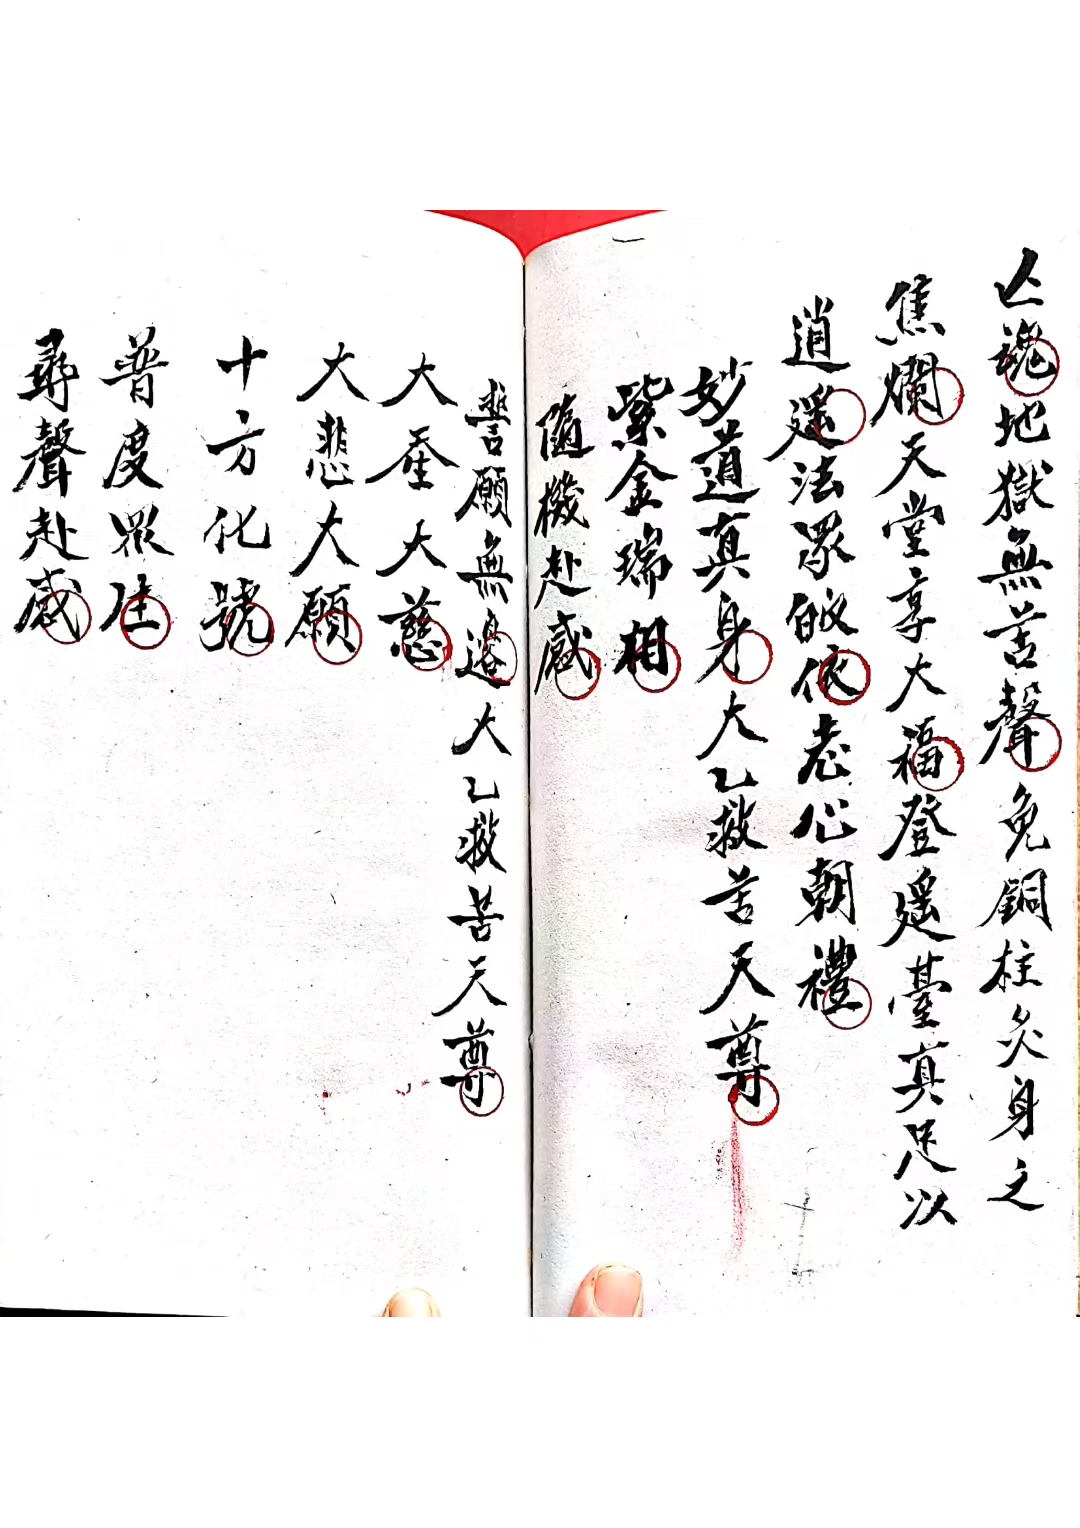 亡魂地獄無苦聲免銅柱炙身之
焦爛天堂享大福登遥臺真足以
逍遥法眾皈依志心朝禮
妙道真身大乙救苦天尊
紫金瑞相
隨機赴感
誓願無邊大乙救苦天尊
大聖大慈
大悲大願
十方化號
普度眾生
尋聲赴感